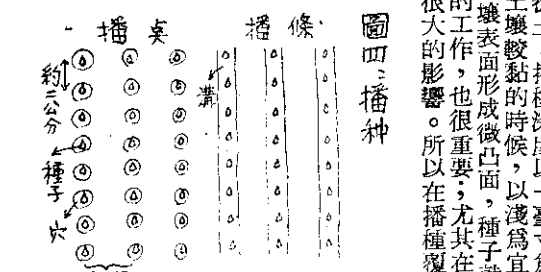 播種深度以一臺寸
土壤較黏的時候，以淺爲宜
壤表面形成微凸面，種子
的工作，也很重要；尤其在
很大的影響。所以在播種覆
圖四：播种
條播
溝
奌播
約二公分
種子
穴